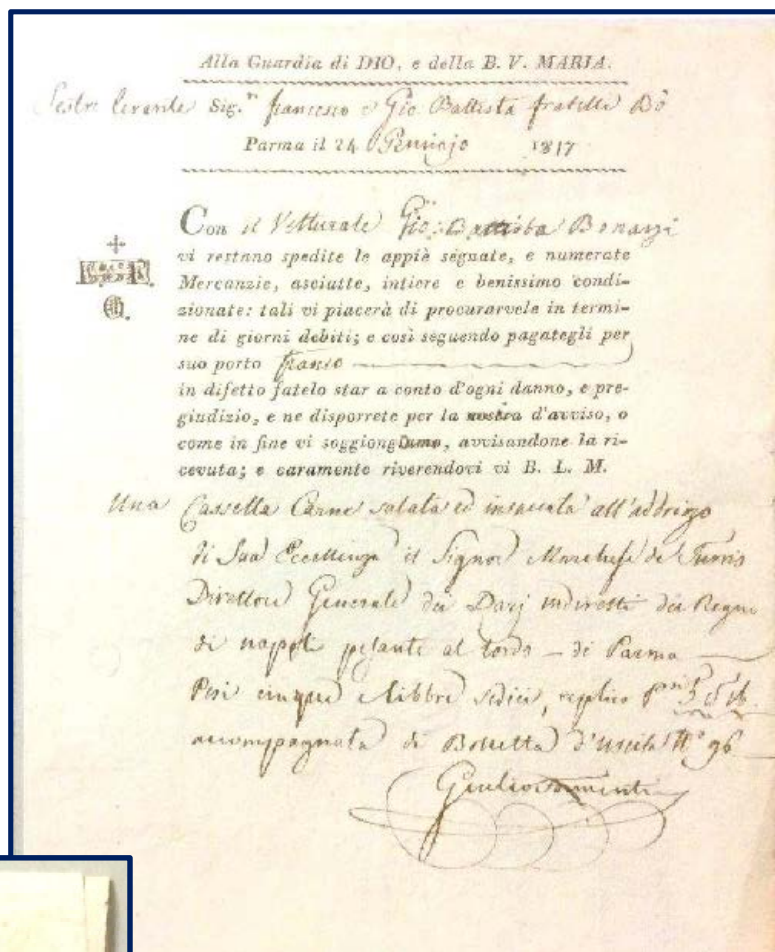 Alla Guardia di DIO, e della B. V. MARIA.
Sestri levante Sig.ri francesco e Gio Battista fratelli Bò
Parma il 24 Gennajo 1817
Con il Vetturale Gio: Battista Bonazzi
vi restano spedite le appiè segnate, e numerate
Mercanzie, asciutte, intiere e benissimo condi-
zionate: tali vi piacerà di procurarvele in termi-
ne di giorni debiti; e così seguendo pagategli per
suo porto franco
in difetto fatelo star a conto d'ogni danno, e pre-
giudizio, e ne disporrete per la nostra d'avviso, o
come in fine vi soggiongDamo, avvisandone la ri-
cevuta; e caramente riverendovi vi B. L. M.
Una Cassetta Carne salata ed insaccata all'addrizzo
di Sua Eccellenza il Signor Marchese de Turris
Direttore Generale dei Dazj indiretti dei Regno
di napoli pesante al lordo - di Parma
Pesi cinque e libbre sedici, replico
accompagnata di Bolletta d'uscita N.o 96